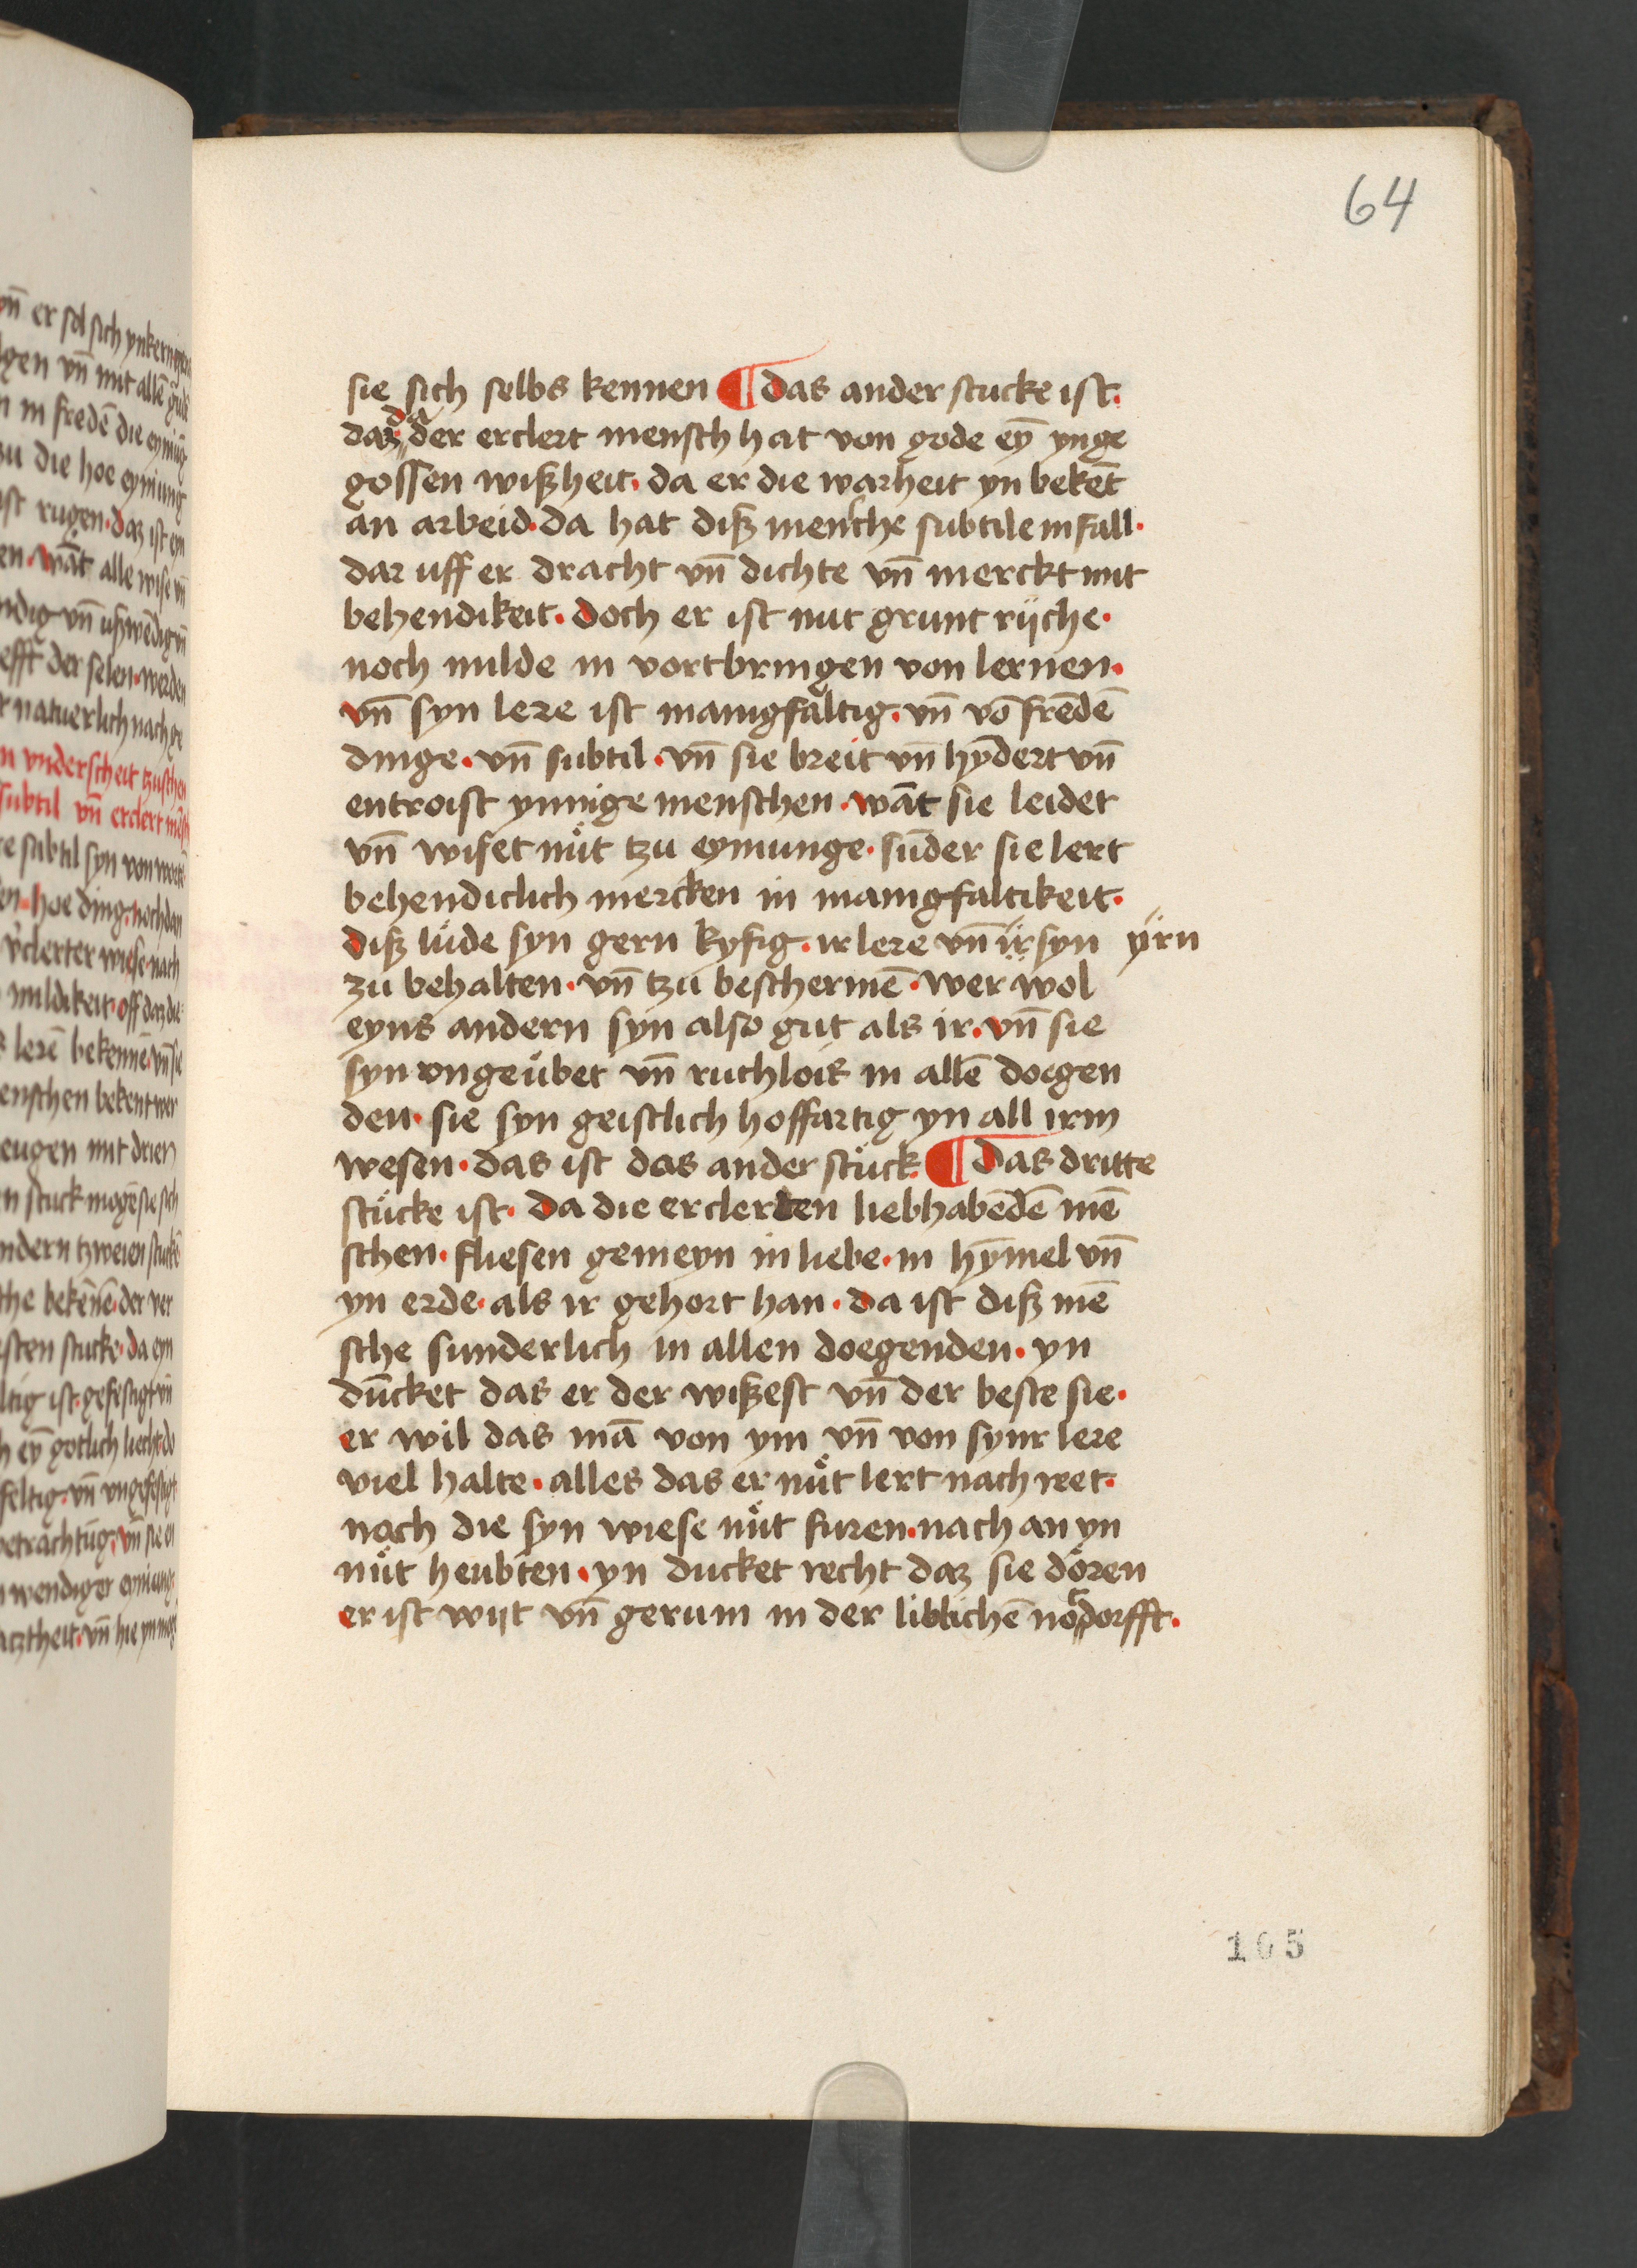 64
sie sich selbs kennen ¶ das ander stucke ist.
daz da der erclert mensch hat von gode ey̅ ynge
gossen wißheit. da er die warheit yn beke̅t
an arbeid. da hat diß mensche subtile infall.
dar uff er dracht vn̅ dichte vn̅ merckt mit
behendikeit. doch er ist nut grunt rijche.
noch milde in vortbringen von lernen.
vn̅ syn lere ist manigfaltig. vn̅ vo̅ fre̅de̅
dinge. vn̅ subtil. vn̅ sie breit vn̅ hy̅dert vn̅
entroist ynnige menschen. wa̅t sie leidet
vn̅ wiset nuͦt tzu eynunge. su̅der sie lert
behendiclich mercken in manigfaltikeit.
diß lüde syn gern kyfig. ir lere vn̅ ir syn ÿrn
zu behalten. vn̅ tzu bescherme̅. wer wol
eyns andern syn also gut als ir. vn̅ sie
syn vngeübet vn̅ ruchlois in alle̅ doegen
den. sie syn geistlich hoffartig yn all irm
wesen. das ist das ander stück. ¶ das dritte
stücke ist. da die erclerten liebhabe̅de̅ me̅
schen. fliesen gemeyn in liebe. in hy̅mel vn̅
yn erde. als ir gehort han. da ist diß me̅
sche sunderlich in allen doegenden. yn
du̅cket das er der wißest vn̅ der beste sie.
er wil das ma̅ von ym vn̅ von synr lere
viel halte. alles das er nuͦt lert nach ret.
noch die syn wiese nuͦt furen. nach an yn
nuͦt heubten. yn ducket recht daz sie dören
er ist wijt vn̅ gerum in der libliche̅ notdorfft.
165